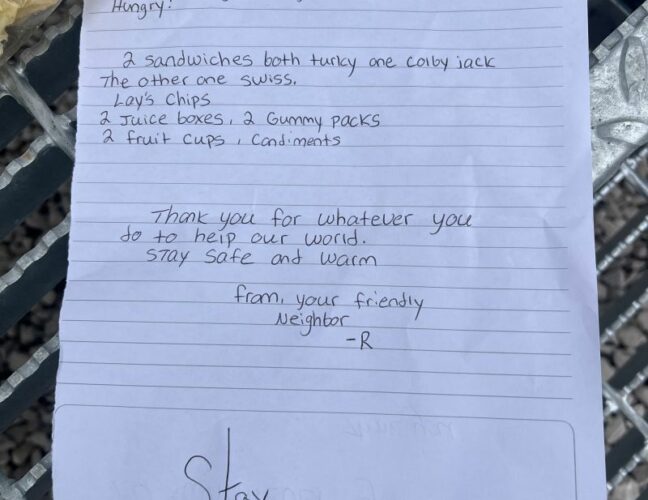 Hungry!
2 sandwiches both turky one colby jack
The other one swiss.
Lay's Chips
2 Juice boxes, 2 Gummy packs
2 fruit cups, Condiments
Thank you for whatever you
do to help our world.
Stay safe and warm
from, your friendly
Neighbor
-R
Stay